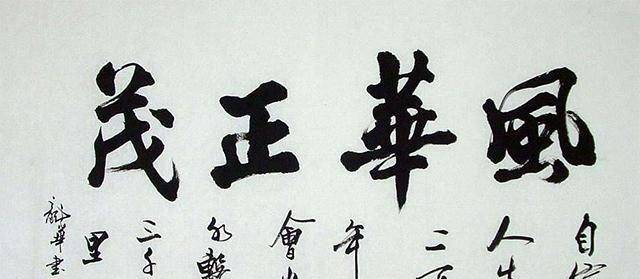 風華正茂
自
人生
二百
年
會
水擊
三千
里
龍華書